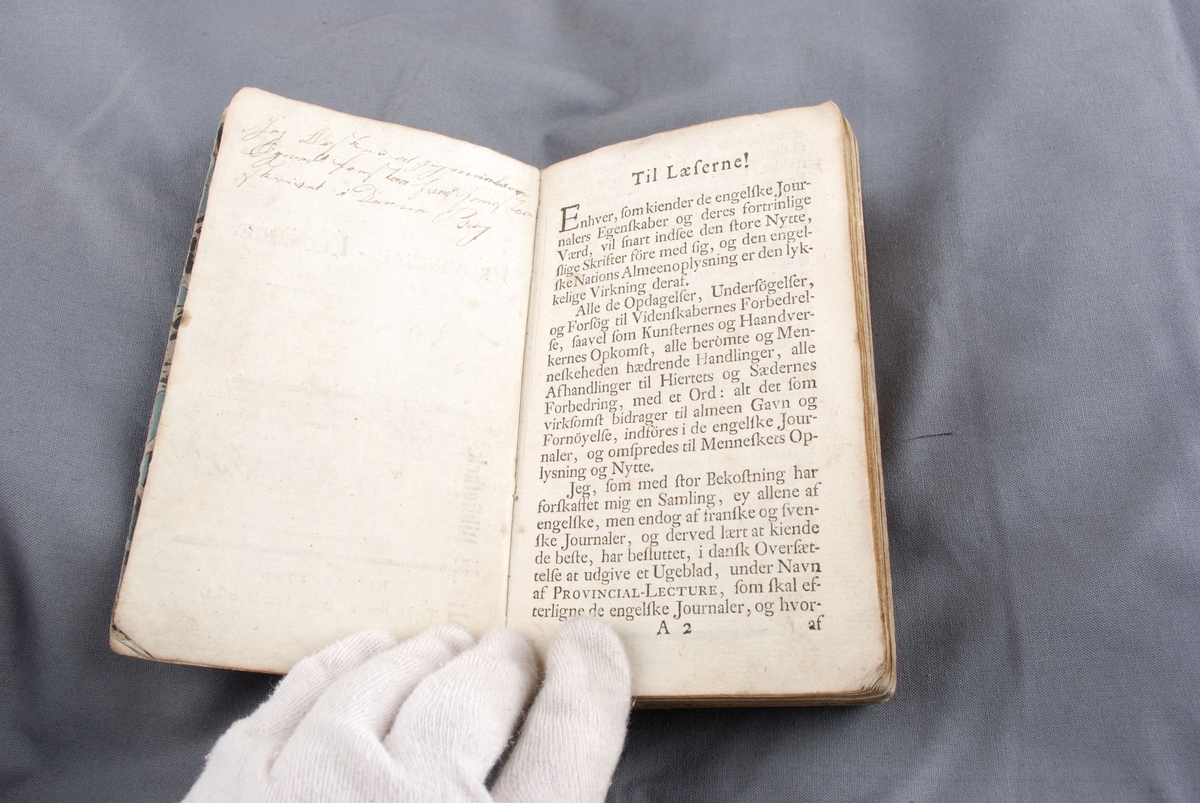 Til Læſerne!
Enhver, ſom kiender de engelſke Jour-
nalers Egenſkaber og deres fortrinlige
Værd, vil ſnart indſee den ſtore Nytte,
ſlige Skrifter före med ſig, og den engel-
ſke Nations Almeenoplysning er den lyk-
kelige Virkning deraf.
Alle de Opdagelſer, Underſögelſer,
og Forſög til Videnſkabernes Forbedrel-
ſe, ſaavel ſom Kunſternes og Haandver-
kernes Opkomſt, alle berömte og Men-
neſkeheden hædrende Handlinger, alle
Afhandlinger til Hiertets og Sædernes
Forbedring, med et Ord: alt det ſom
virkſomſt bidrager til almeen Gavn og
Fornöyelſe, indföres i de engelſke Jour-
naler, og omſpredes til Menneſkets Op-
lysning og Nytte.
Jeg, ſom med ſtor Bekoſtning har
forſkaffet mig en Samling, ey allene af
engelſke, men endog af franſke og ſven-
ſke Journaler, og derved lært at kiende
de beſte, har beſluttet, i danſk Overſæt-
telſe at udgive et Ugeblad, under Navn
af PROVINCIAL-LECTURE, ſom ſkal ef-
terligne de engelſke Journaler, og hvor-
A 2 af